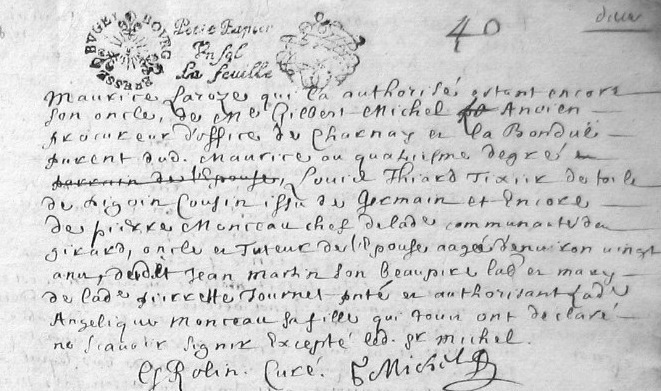 BUGEY BOURG BRESSE
Petit Papier
Un sol
La feuille
40
deux
Maurice Laroze qui l'a authorisé estant encore
son oncle, de Me Gilbert Michel Ancien
procureur d'office de Charnay et la Bonduë
parent dud. Maurice au quatriesme degré
parrain de l'Epouse, Louis Thiard Tixier de toile
de Digoin Cousin issu de Germain et Encore
de pierre Monceau chef de lade communauté des
girard, oncle et Tuteur de l'Epouse aagée d'environ vingt
ans, dudit Jean martin son Beaupere lab et mary
de lade pierrette Tournet pnté et authorisant lade
Angelique monceau sa fille qui tous ont declaré
ne scavoir signer Excepté led. sr michel.
Rolin. Curé. Michel